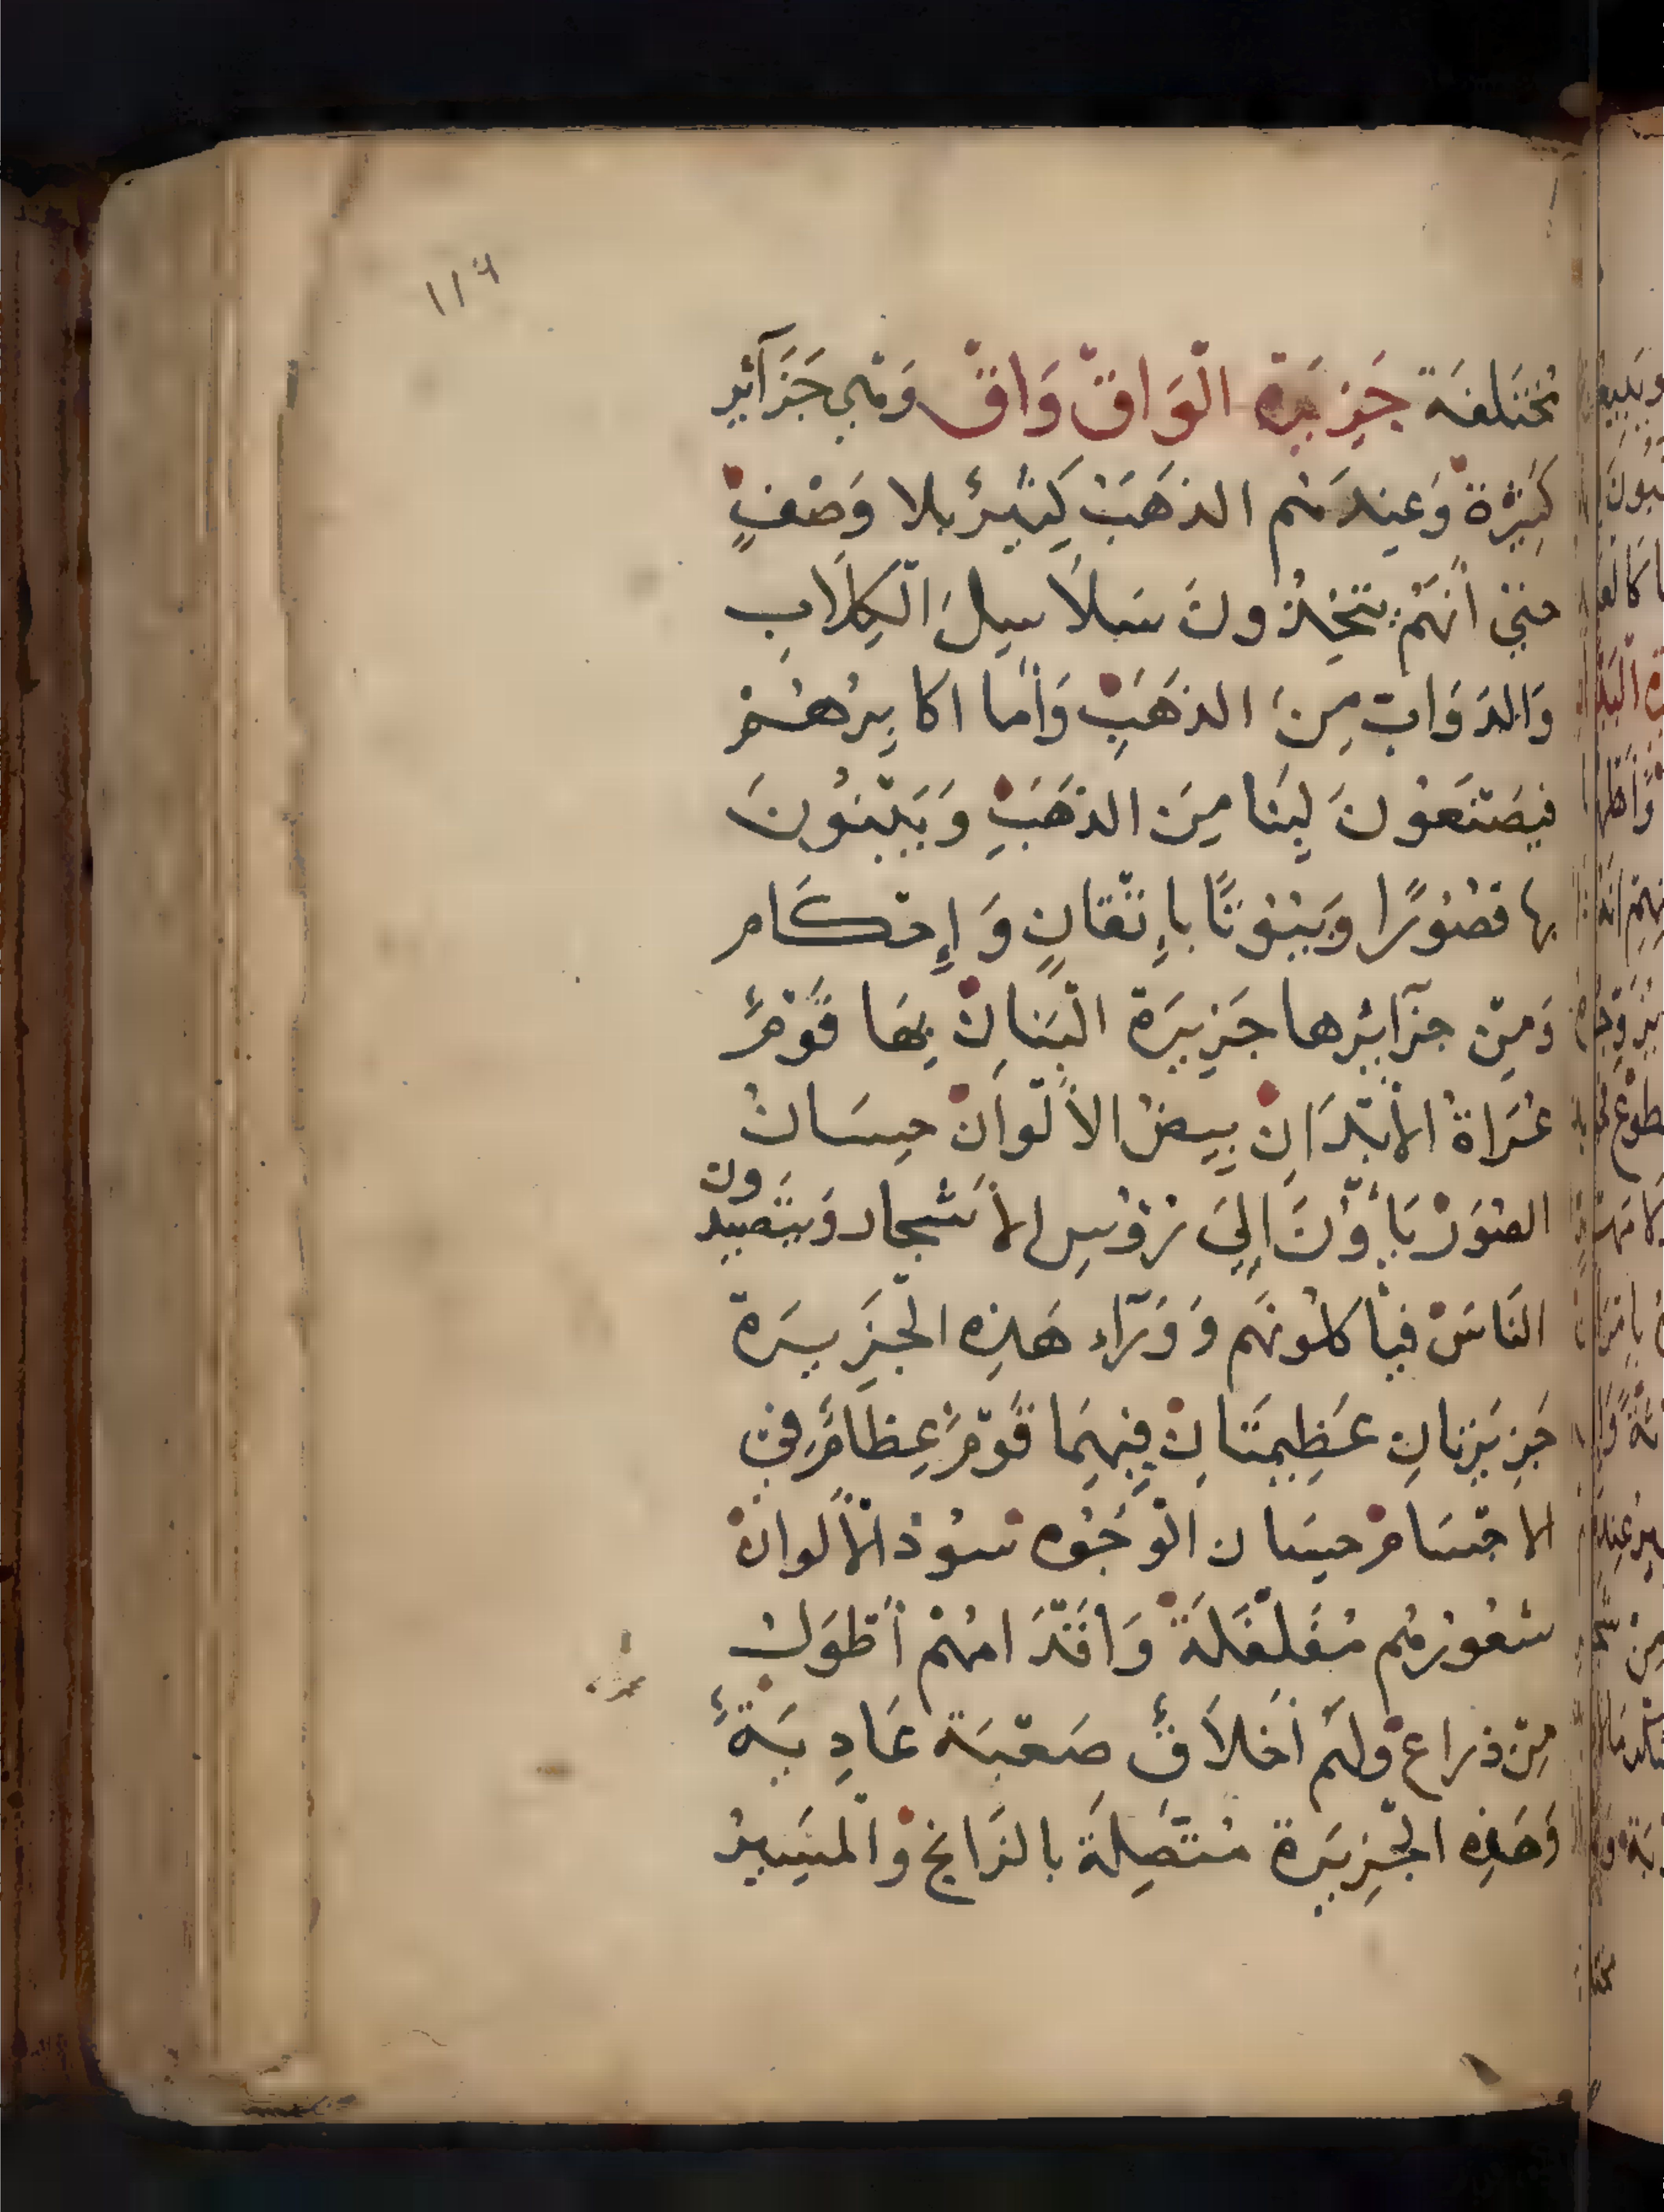 ١١٩
مُختَلفَة جَزِيَرة الْوَاقْ وَاقْ وَهْي جَزَآئر
كَثِيْرَة وَعِندَهُم الذهَبْ كَثيرٌ بلا وَصْفٍ
حتي أنهَّمْ يتخِذُونَ سَلاَسِلَ الْكِلَاب
وَالدَوَاب مِنَ الذهَبِ وَأما اكابِرُهُمْ
فيَصْنَعُونَ لبِنَا مِنَ الذهَبِ وَيَبْنوُنَ
بها قصُوُرًا وَبيُوُتًا باِتْقانٍ وَإِحْكَام
وَمِنْ جزآئرها جَزِيرَة الْبَنانْ بِهَا قَوْمٌ
عُرَاةُ الأبْدَانِ بِيضُ الأَلْوَانْ حِسَانُ
الصُوَرْ يَأوُنَ اِلَي رُؤسِ الأَشْجار وَيتَصيدون
النَاسَ فيأكلوُنهَم وَوَرَآء هَذِه الْجَزِيرَة
جَزِيرَتانِ عَظِيمَتَانِ فِيهِمَا قَوْمٌ عِظامٌ فِي
الاجْسَامْ حِسَان الْوجُوُه سُوُد الْأَلوانْ
شعُورُهُم مُفَلفَلَةْ وَأقْدَامهُمْ أَطْوَلُ
مِنْ ذراع وَلهَم أخَلاَقٌ صَعْبَة عَادِيَةٌ
وَهَذِه الْجزِيَرة مُتَّصِلَة بالزَانج والْمسَيرُ